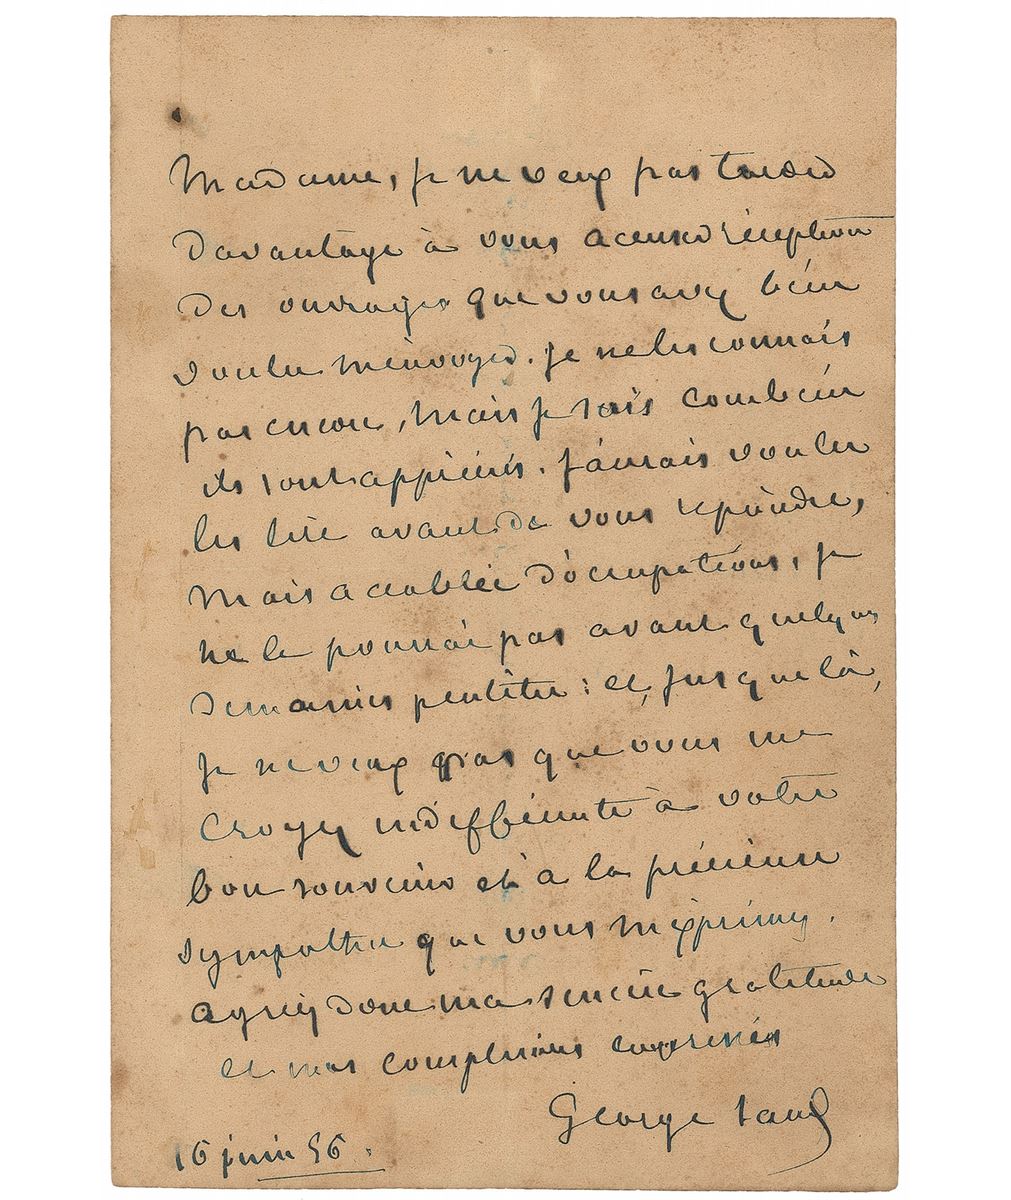 Madame, je ne veux pas tarder
davantage à vous accuser réception
des ouvrages que vous avez bien
voulu m'envoyer. je ne les connais
pas encore, mais je sais combien
ils sont appréciés. j'aurais voulu
les lire avant de vous répondre,
mais accablée d'occupations, je
ne le pourrai pas avant quelques
semaines peut être : et, jusque là,
je ne veux pas que vous me
croyez indifférente à votre
bon souvenir et à la précieuse
sympathie que vous m'exprimez.
agréez donc ma sincère gratitude
et mes complimens empressés
George Sand
16 juin 56.